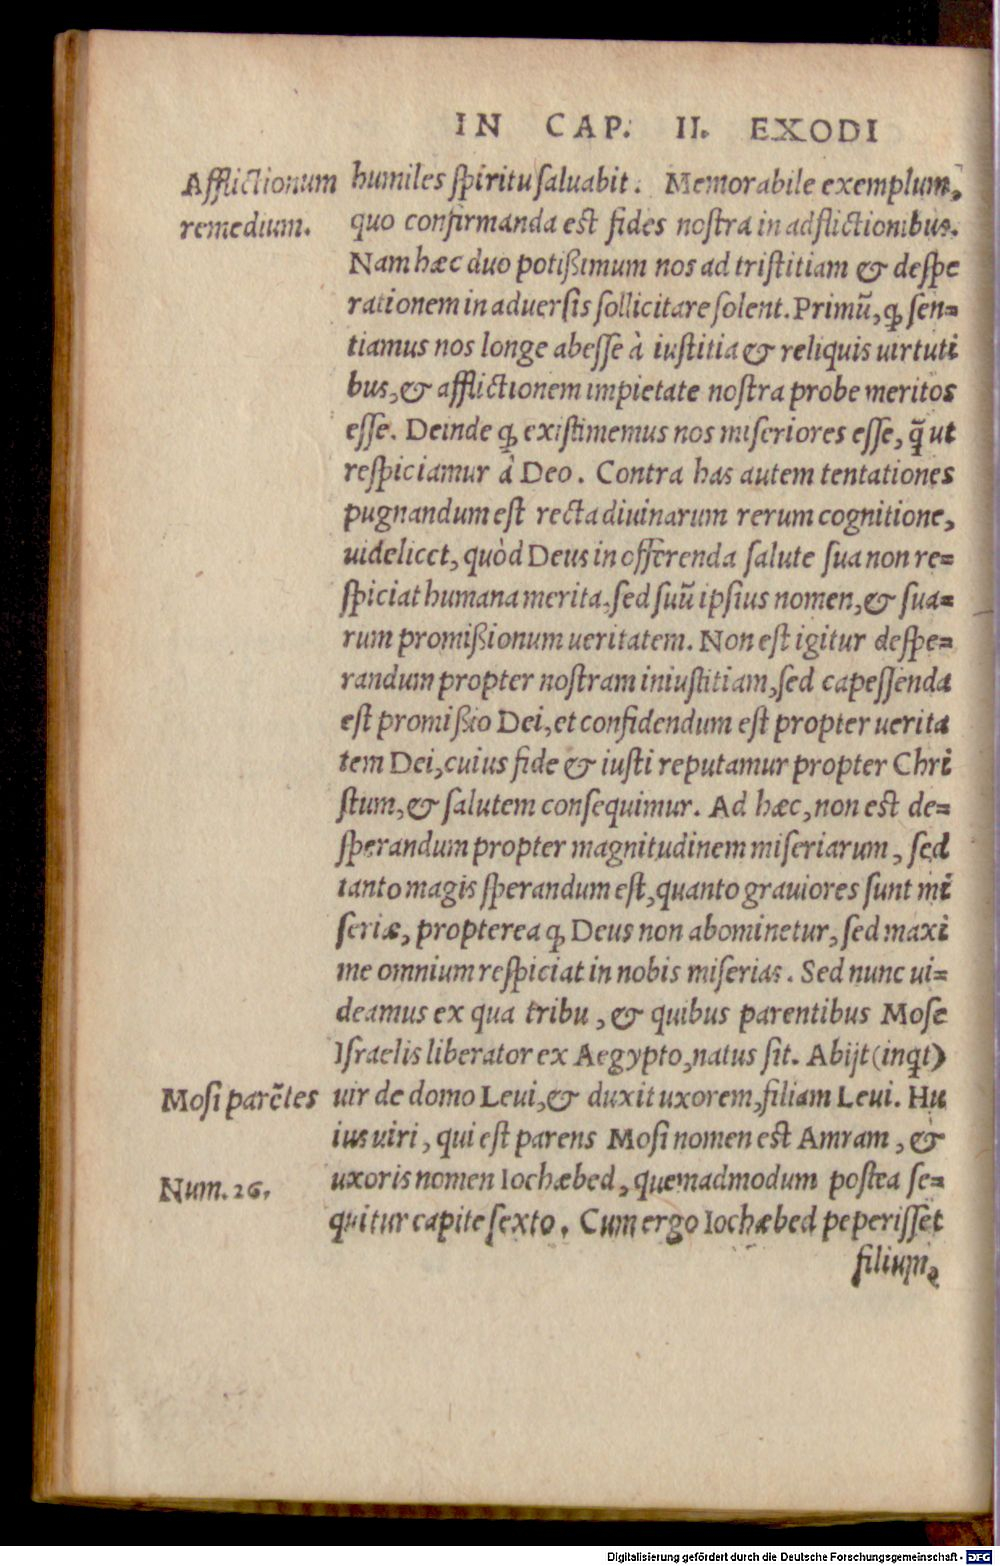 IN CAP. II. EXODI
Afflictionum
remedium.
humiles spiritu saluabit. Memorabile exemplum,
quo confirmanda est fides nostra in adflictionibus.
Nam hæc duo potißimum nos ad tristitiam & despe
rationem in aduersis sollicitare solent. Primũ, ꝙ sen=
tiamus nos longe abesse à iustitia & reliquis uirtuti
bus, & afflictionem impietate nostra probe meritos
esse. Deinde ꝙ existimemus nos miseriores esse, q̃ ut
respiciamur à Deo. Contra has autem tentationes
pugnandum est recta diuinarum rerum cognitione,
uidelicet, quòd Deus in offerenda salute sua non re=
spiciat humana merita, sed suũ ipsius nomen, & sua=
rum promißionum ueritatem. Non est igitur despe=
randum propter nostram iniustitiam, sed capessenda
est promißio Dei, et confidendum est propter uerita
tem Dei, cuius fide & iusti reputamur propter Chri
stum, & salutem consequimur. Ad hæc, non est de=
sperandum propter magnitudinem miseriarum, sed
tanto magis sperandum est, quanto grauiores sunt mi
seriæ, propterea ꝙ Deus non abominetur, sed maxi
me omnium respiciat in nobis miserias. Sed nunc ui=
deamus ex qua tribu, & quibus parentibus Mose
Israelis liberator ex Aegypto, natus sit. Abijt (inq̃t)
Mosi parẽtes
uir de domo Leui, & duxit uxorem, filiam Leui. Hu
ius uiri, qui est parens Mosi nomen est Amram, &
Num. 26.
uxoris nomen Iochæbed, quemadmodum postea se=
quitur capite sexto. Cum ergo Iochæbed peperisset
filium,
Digitalisierung gefördert durch die Deutsche Forschungsgemeinschaft - DFG